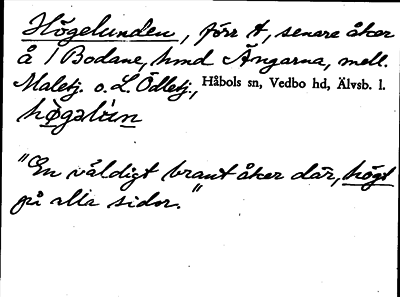 Högelunden, förr t, senare åker
å 1 Bodane, hmd Ängarna, mell.
Maletj. o. L. Ödletj., Håbols sn, Vedbo hd, Älvsb. l.
högəlu̇n
"En väldigt brant åker där, högt
på alla sidor."